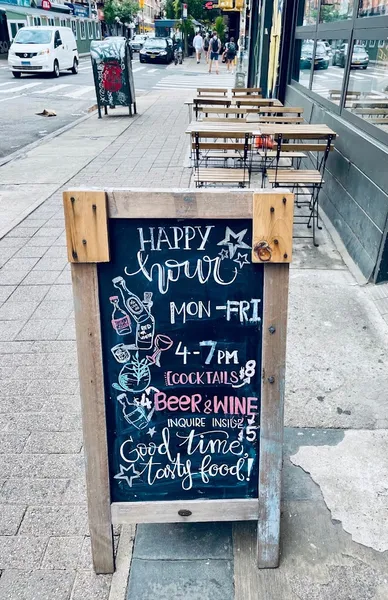 HAPPY
hour
MON-FRI
4-7PM
COCKTAILS $8
$4 BEER & WINE
INQUIRE INSIDE $5
Good time,
tasty food!